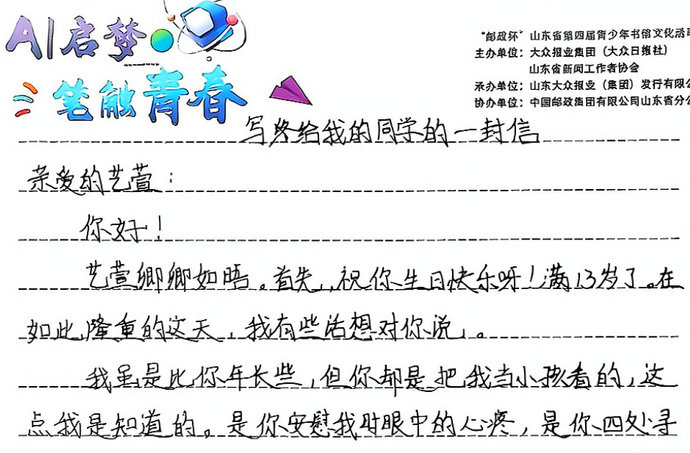 AI启梦
笔触青春
"邮政杯"山东省第四届青少年书信文化活动
主办单位：大众报业集团（大众日报社）
山东省新闻工作者协会
承办单位：山东大众报业（集团）发行有限公
协办单位：中国邮政集团有限公司山东省分公
写给我的同学的一封信
亲爱的艺萱：
你好！
艺萱卿卿如晤。首先，祝你生日快乐呀！满13岁了。在
如此隆重的这天，我有些话想对你说。
我虽是比你年长些，但你却是把我当小孩看的，这
点我是知道的。是你安慰我时眼中的心疼，是你四处寻